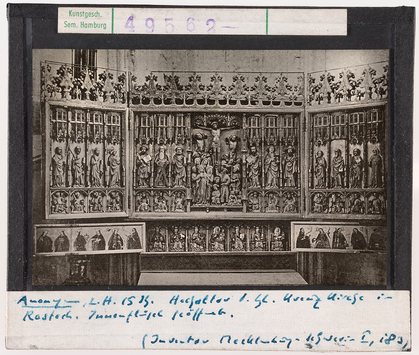 Kunstgesch.
Sem. Hamburg
49562
Anonym, 2. H. 15. Jh. Hochaltar d. hl. Kreuz Kirche in
Rostock. Innenflügel geöffnet.
(Inventar Mecklenburg-Schwerin I, 183)